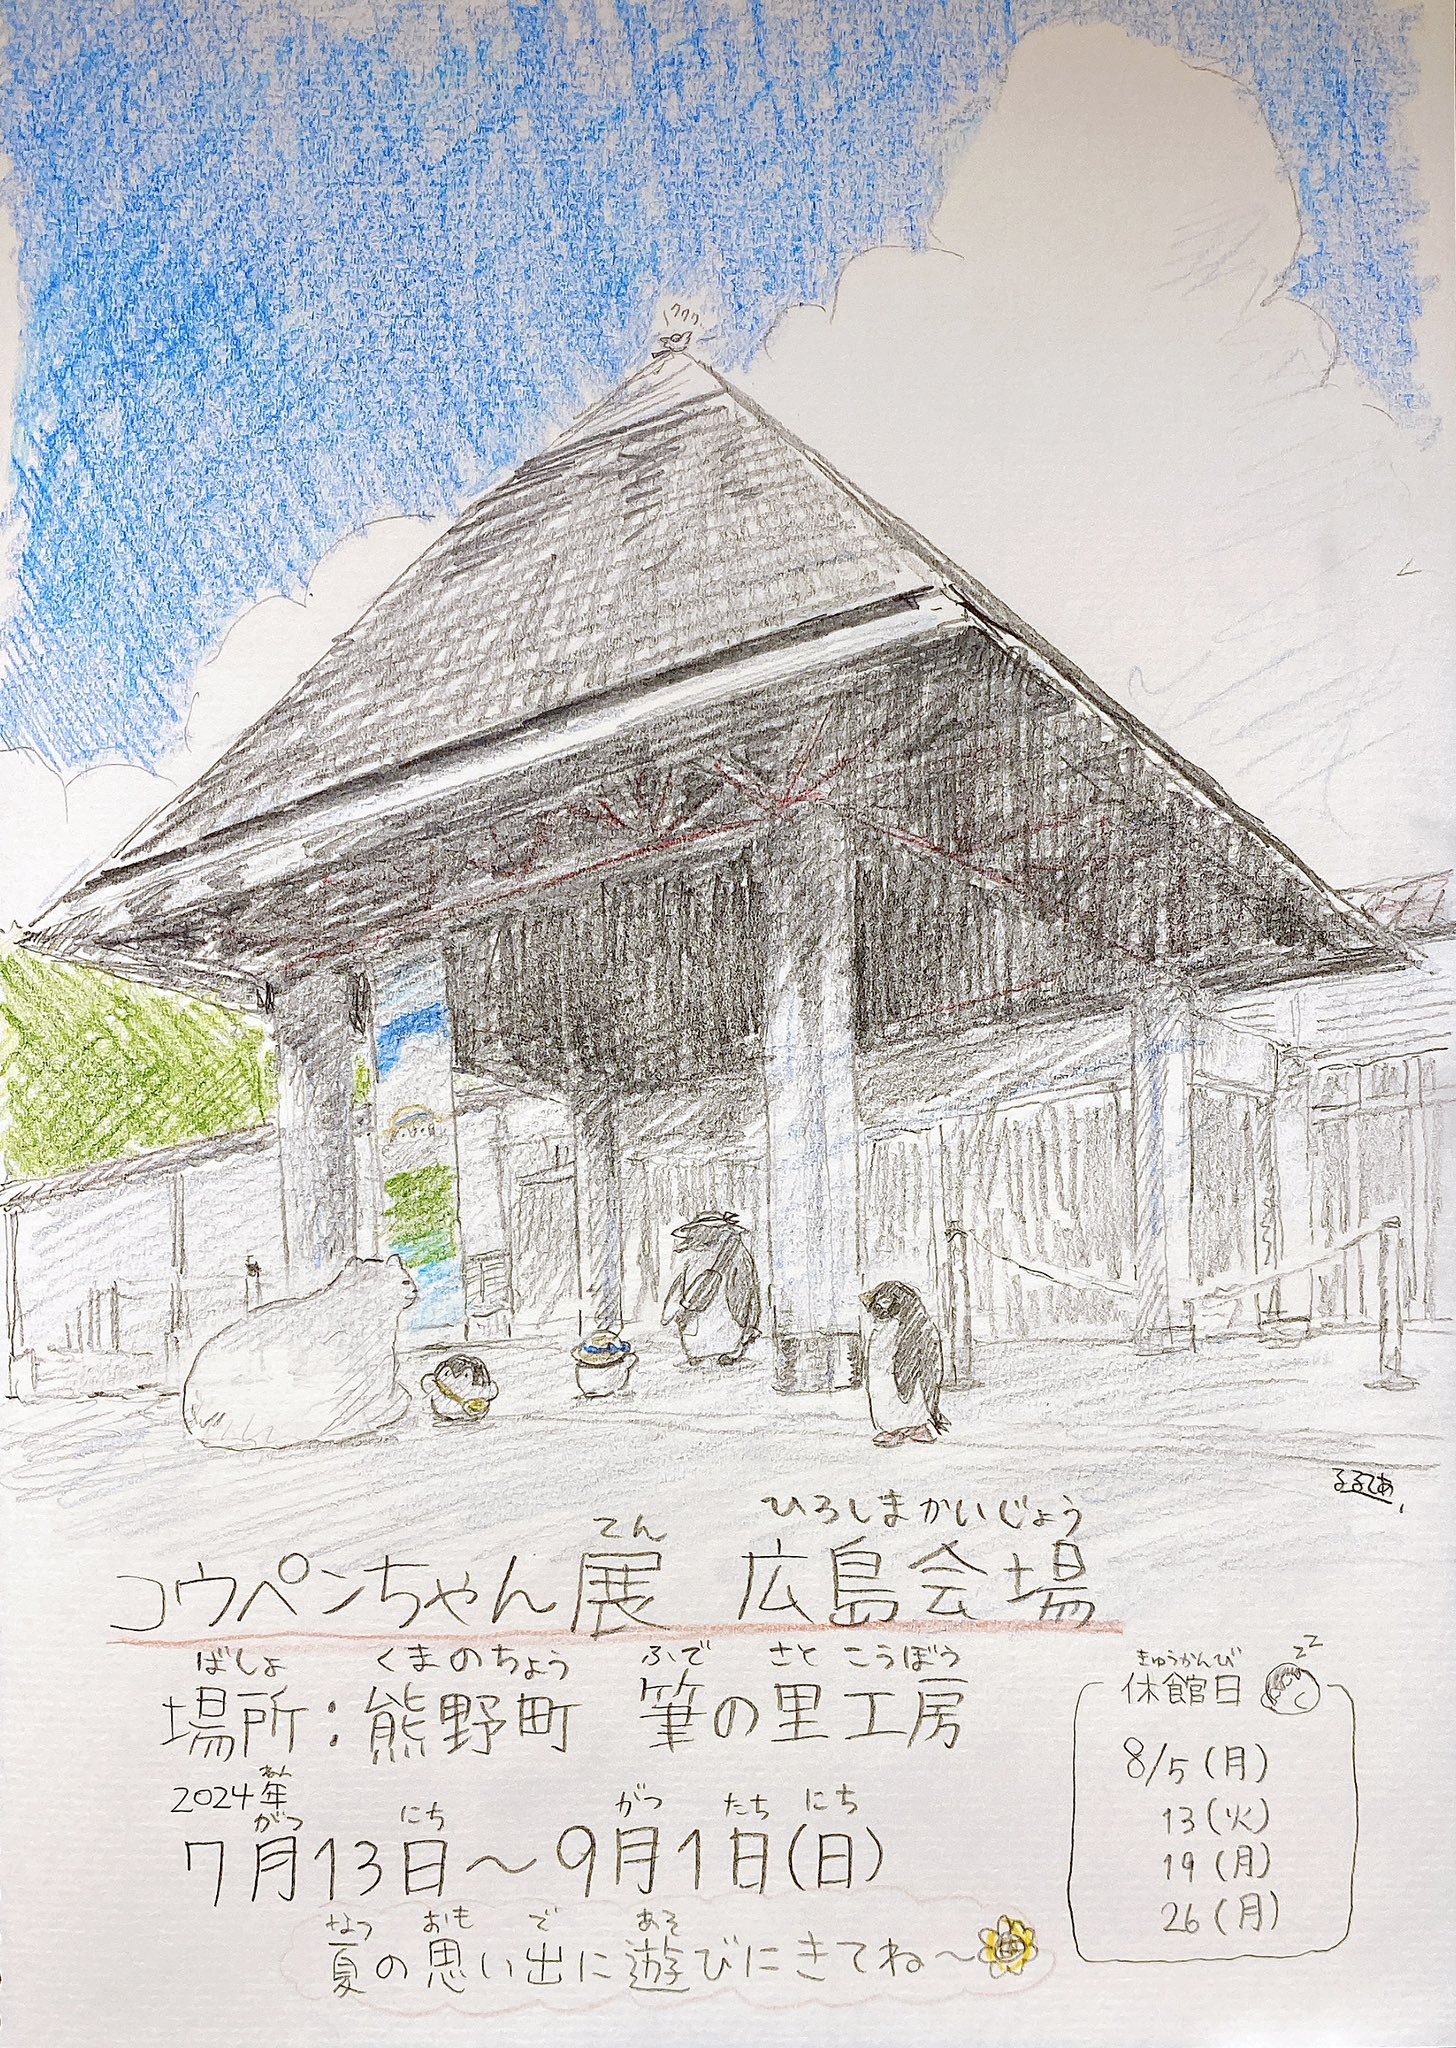 ククク
るるてあ
てん ひろしまかいじょう
コウペンちゃん展 広島会場
ばしょ くまのちょう ふで さと こうぼう
場所:熊野町 筆の里工房
ねん
2024年
がつ にち がつ たち にち
7月13日〜9月1日(日)
なつ おも で あそ
夏の思い出に遊びにきてね〜
きゅうかんび
休館日
zzz
8/5(月)
13(火)
19(月)
26(月)